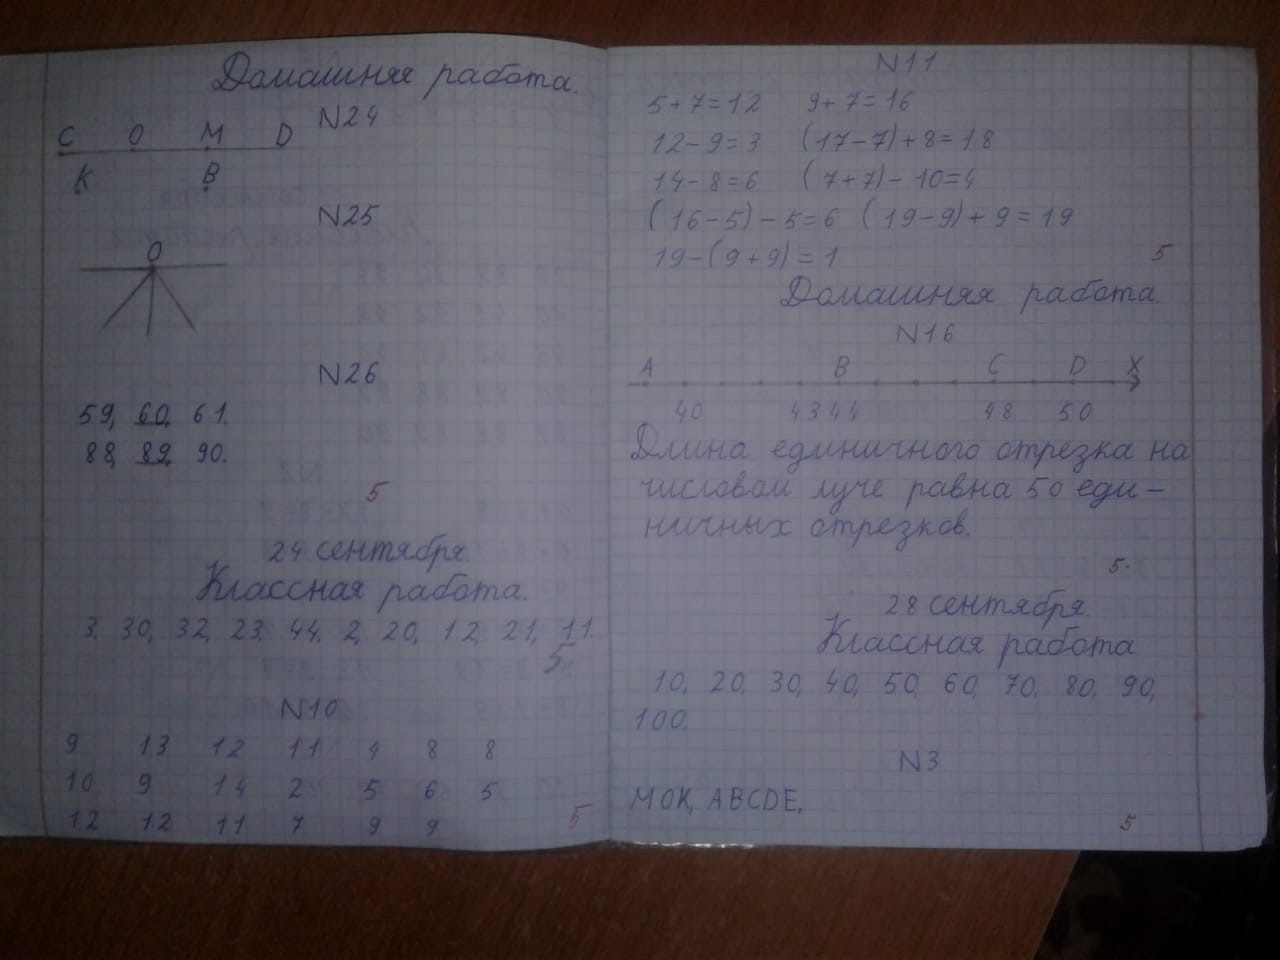 Домашняя работа.
N24
C O M D
K B
N25
O
N26
59, 60, 61.
88, 89, 90.
5
24 сентября
Классная работа.
3, 30, 32, 23, 44, 2, 20, 12, 21, 11.
5
N10
9 13 12 11 4 8 8
10 9 14 2 5 6 5
12 12 11 7 9 9
5
N11
5+7=12 9+7=16
12-9=3 (17-7)+8=18
14-8=6 (7+7)-10=4
(16-5)-5=6 (19-9)+9=19
19-(9+9)=1
5
Домашняя работа.
N16
A B C D X
40 43 44 48 50
Длина единичного отрезка на
числовом луче равна 50 еди-
ничных отрезков.
5.
28 сентября
Классная работа
10, 20, 30, 40, 50, 60, 70, 80, 90,
100.
N3
МОК, ABCDE,
5